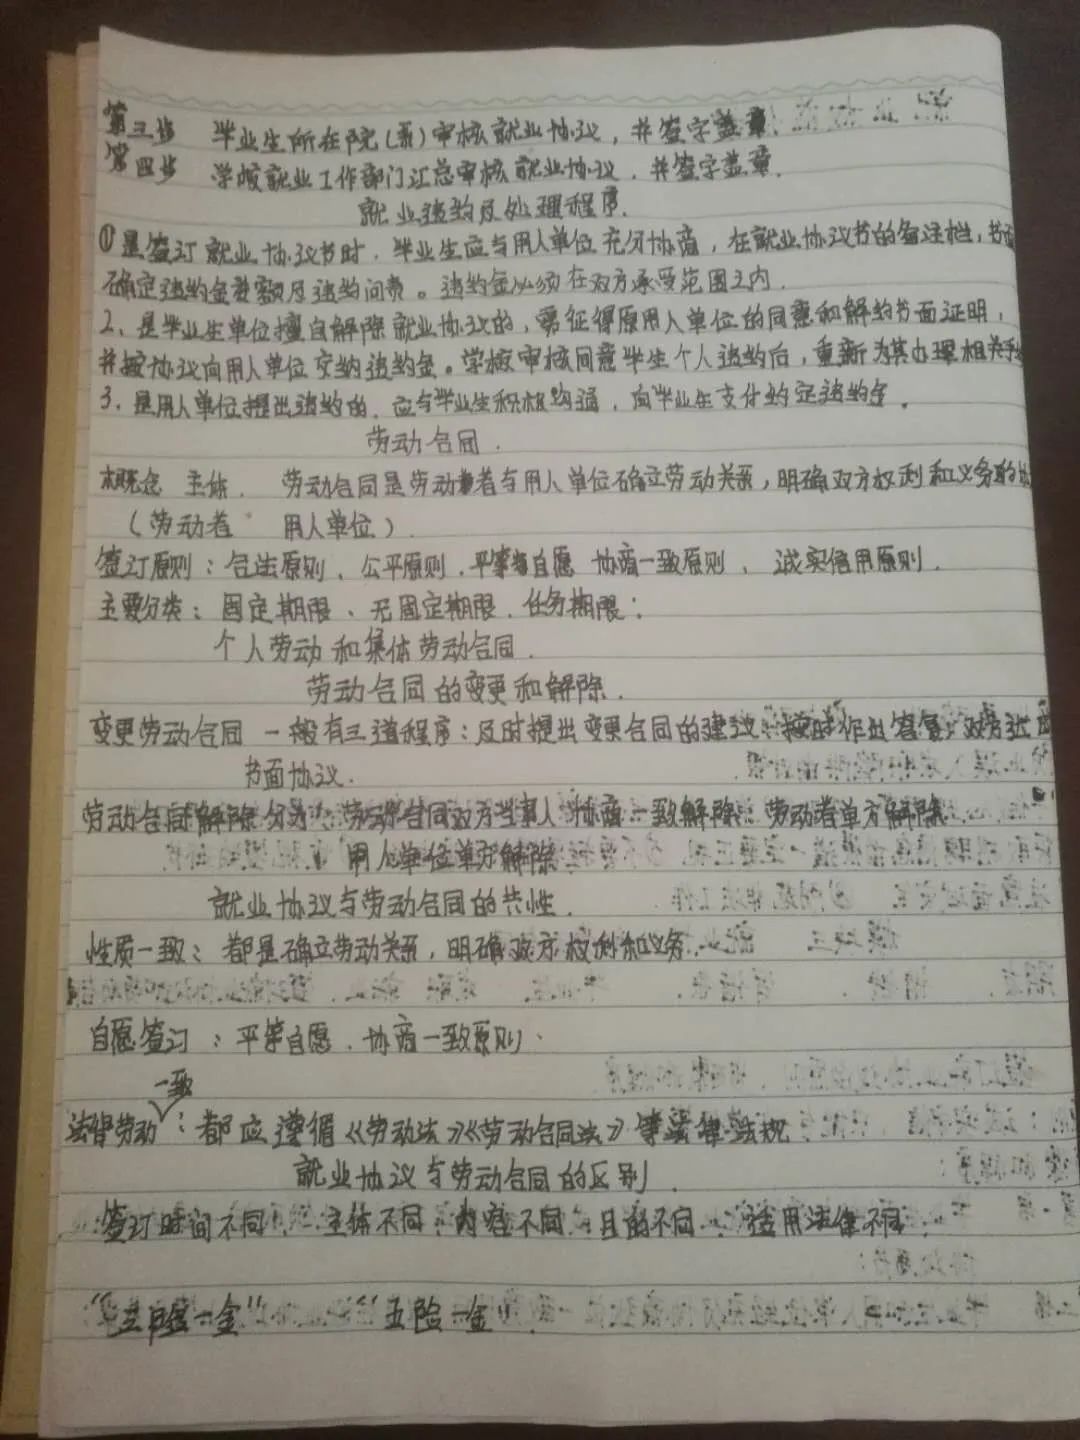 第三步 毕业生所在院(系)审核就业协议，并签字盖章
第四步 学校就业工作部门汇总审核就业协议，并签字盖章.
就业违约及处理程序.
①是签订就业协议书时.毕业生应与用人单位充分协商，在就业协议书的备注栏,书面
确定违约金数额及违约问责。违约金必须在双方承受范围之内.
2、是毕业生单位擅自解除就业协议的，需征得原用人单位的同意和解约书面证明，
并按协议向用人单位交纳违约金。学校审核同意毕生个人违约后，重新为其办理相关手
3、是用人单位提出违约的.应与毕业生积极沟通，向毕业生支付约定违约金。
劳动合同.
概念 主体. 劳动合同是劳动者与用人单位确立劳动关系，明确双方权利和义务的协
(劳动者 用人单位)
签订原则：合法原则、公平原则.平等自愿 协商一致原则、诚实信用原则.
主要分类：固定期限、无固定期限.任务期限；
个人劳动和集体劳动合同.
劳动合同的变更和解除.
变更劳动合同 一般有三道程序:及时提出变更合同的建议.按时作出答复.双方达成
书面协议.
劳动合同解除分为:劳动合同双方当事人协商一致解除.劳动者单方解除
用人单位单方解除
就业协议与劳动合同的共性.
性质一致：都是确立劳动关系，明确双方权利和义务.
自愿签订：平等自愿.协商一致原则.
一致
法律劳动：都应遵循《劳动法》《劳动合同法》等法律法规
就业协议与劳动合同的区别.
签订时间不同. 主体不同.内容不同.目的不同. 适用法律不同.
“三险一金” “五险一金”.